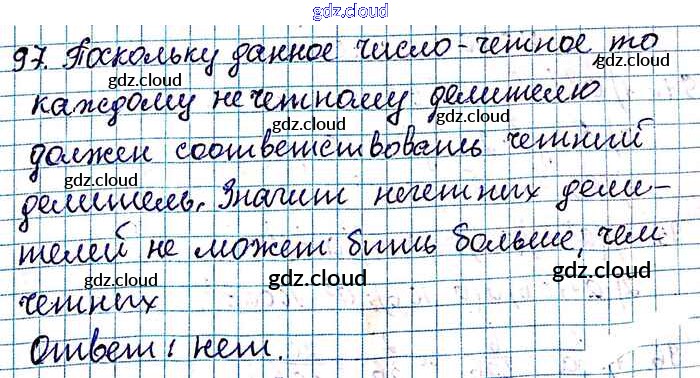 gdz.cloud
97. Поскольку данное число - четное то
gdz.cloud gdz.cloud
каждому нечетному делителю
gdz.cloud
должен соответствовать четный
gdz.cloud gdz.cloud
делитель. Значит нечетных дели-
gdz.cloud
телей не может бить больше, чем
gdz.cloud gdz.cloud gdz.cloud
четных
Ответ: нет.